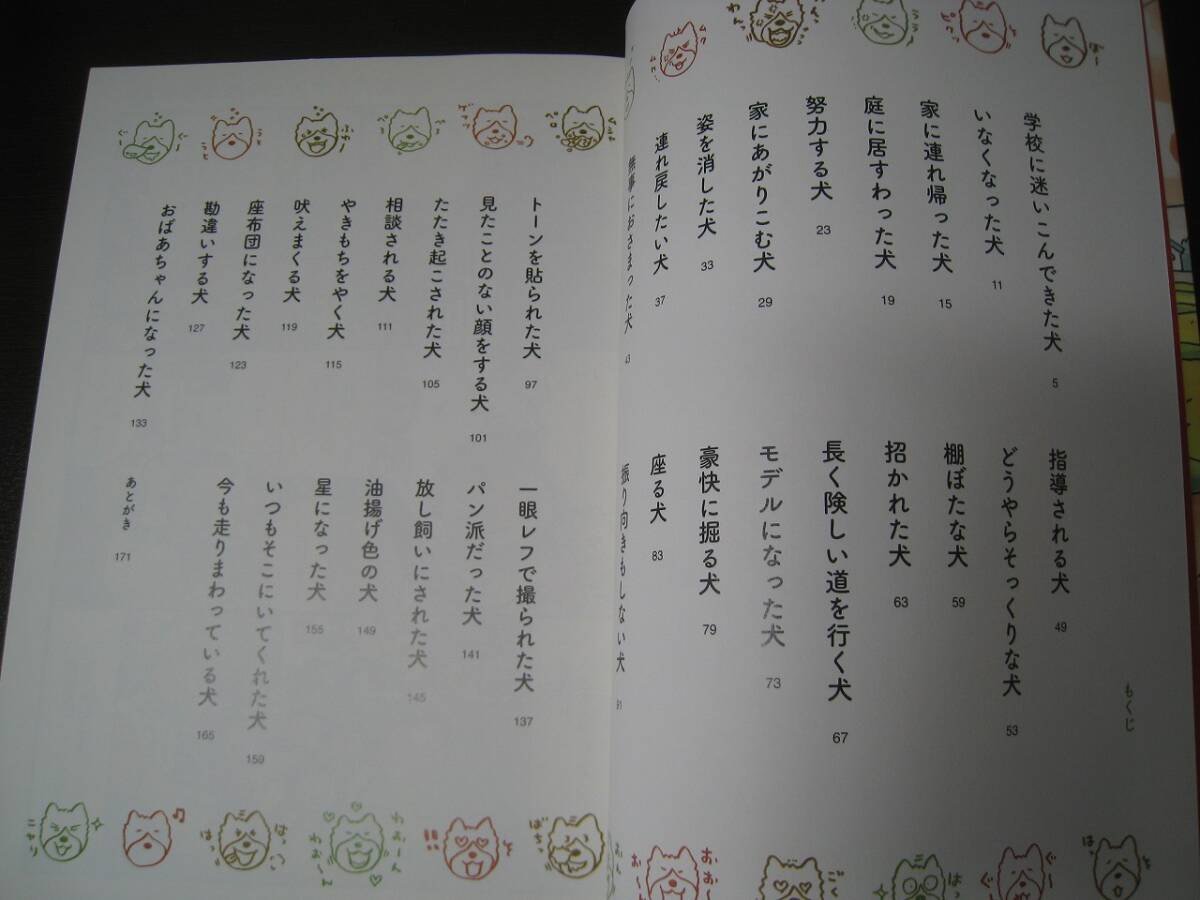 もくじ
学校に迷いこんできた犬 5
いなくなった犬 11
家に連れ帰った犬 15
庭に居すわった犬 19
努力する犬 23
家にあがりこむ犬 29
姿を消した犬 33
連れ戻したい犬 37
無事におさまった犬 43
指導される犬 49
どうやらそっくりな犬 53
棚ぼたな犬 59
招かれた犬 63
長く険しい道を行く犬 67
モデルになった犬 73
豪快に掘る犬 79
座る犬 83
振り向きもしない犬 91
トーンを貼られた犬 97
見たことのない顔をする犬 101
たたき起こされた犬 105
相談される犬 111
やきもちをやく犬 115
吠えまくる犬 119
座布団になった犬 123
勘違いする犬 127
おばあちゃんになった犬 133
一眼レフで撮られた犬 137
パン派だった犬 141
放し飼いにされた犬 145
油揚げ色の犬 149
星になった犬 155
いつもそこにいてくれた犬 159
今も走りまわっている犬 165
あとがき 171
ニヤリ
はっ
わおーん
わおーん